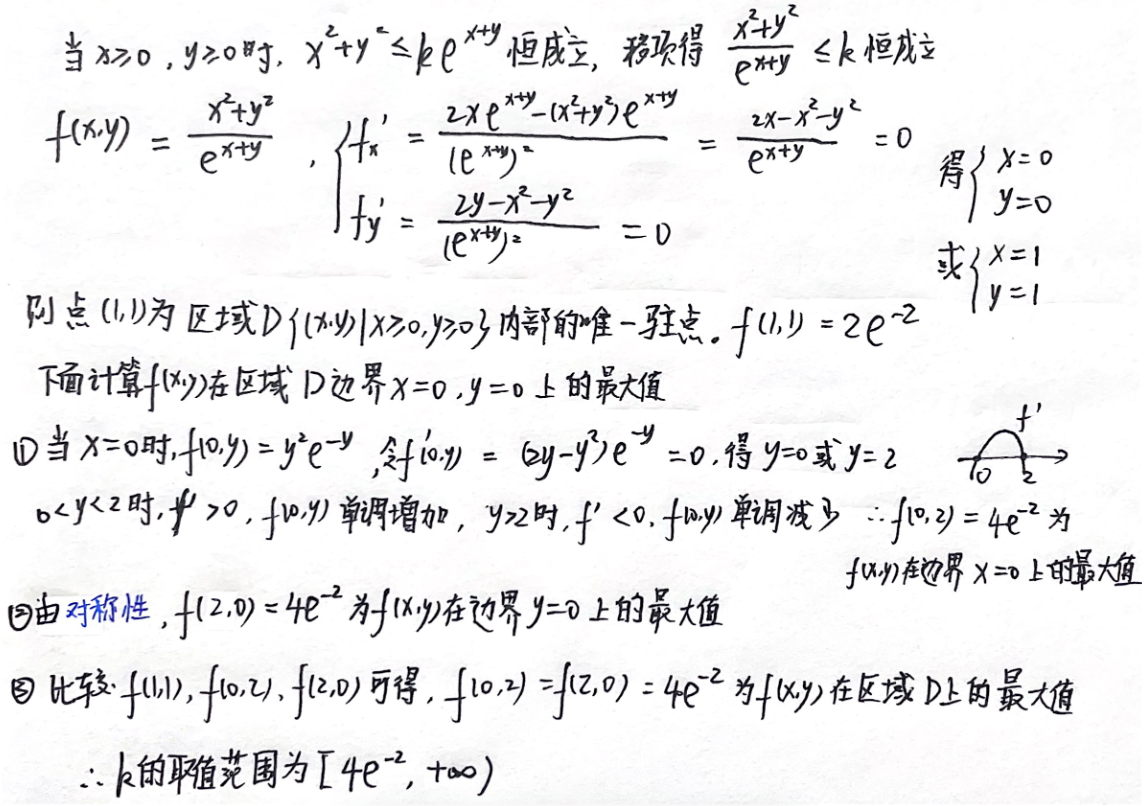 当 x≥0, y≥0时, x²+y²≤ke^{x+y} 恒成立, 移项得 \frac{x²+y²}{e^{x+y}} ≤k 恒成立
f(x,y) = \frac{x²+y²}{e^{x+y}}, { f'_x = \frac{2xe^{x+y}-(x²+y²)e^{x+y}}{(e^{x+y})²} = \frac{2x-x²-y²}{e^{x+y}} = 0
f'_y = \frac{2y-x²-y²}{(e^{x+y})²} = 0
得 { x=0 y=0
或 { x=1 y=1
则点(1,1)为区域D{(x,y)|x≥0,y≥0}内部的唯一驻点。f(1,1)=2e^{-2}
下面计算f(x,y)在区域D边界x=0,y=0上的最大值
①当x=0时,f(0,y)=y²e^{-y},令f'(0,y)=(2y-y²)e^{-y}=0,得y=0或y=2
f'
0 2
0<y<2时,f'>0,f(0,y)单调增加,y>2时,f'<0,f(0,y)单调减少 ∴f(0,2)=4e^{-2}为
f(x,y)在边界x=0上的最大值
②由对称性,f(2,0)=4e^{-2}为f(x,y)在边界y=0上的最大值
③比较f(1,1),f(0,2),f(2,0)可得,f(0,2)=f(2,0)=4e^{-2}为f(x,y)在区域D上的最大值
∴k的取值范围为[4e^{-2},+∞)